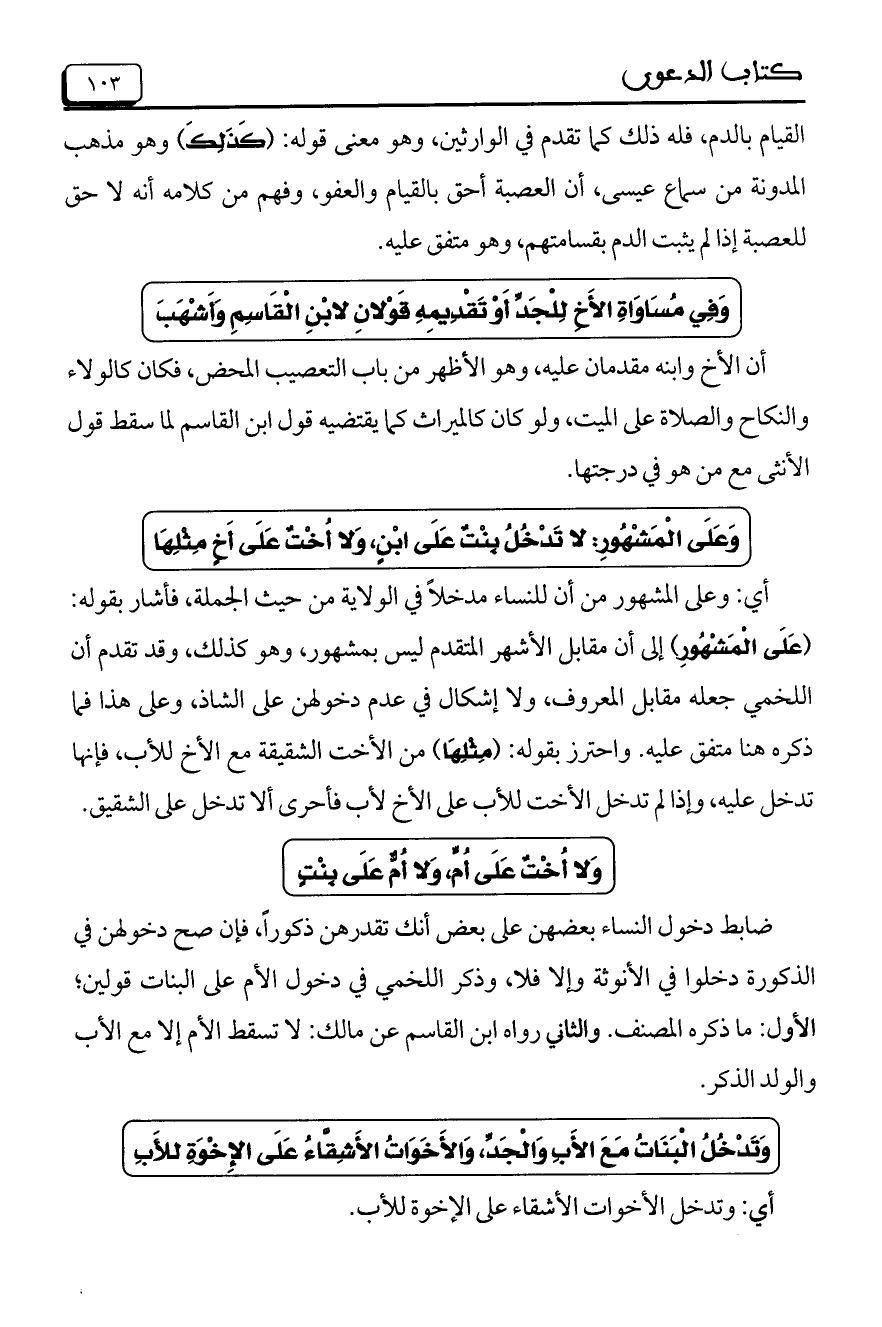 كتاب الدعوى
١٠٣
القيام بالدم، فله ذلك كما تقدم في الوارثين، وهو معنى قوله: (كَذَلِكَ) وهو مذهب
المدونة من سماع عيسى، أن العصبة أحق بالقيام والعفو، وفهم من كلامه أنه لا حق
للعصبة إذا لم يثبت الدم بقسامتهم، وهو متفق عليه.
وَفِي مُسَاوَاةِ الأَخِ لِلْجَدِّ أَوْ تَقْدِيمِهِ قَوْلانِ لابْنِ الْقَاسِمِ وَأَشْهَبَ
أن الأخ وابنه مقدمان عليه، وهو الأظهر من باب التعصيب المحض، فكان كالولاء
والنكاح والصلاة على الميت، ولو كان كالميراث كما يقتضيه قول ابن القاسم لما سقط قول
الأنثى مع من هو في درجتها.
وَعَلَى الْمَشْهُورِ: لا تَدْخُلُ بِنْتٌ عَلَى ابْنٍ، وَلا أُخْتٌ عَلَى أَخٍ مِثْلِهَا
أي: وعلى المشهور من أن للنساء مدخلاً في الولاية من حيث الجملة، فأشار بقوله:
(عَلَى الْمَشْهُورِ) إلى أن مقابل الأشهر المتقدم ليس بمشهور، وهو كذلك، وقد تقدم أن
اللخمي جعله مقابل المعروف، ولا إشكال في عدم دخولهن على الشاذ، وعلى هذا فما
ذكره هنا متفق عليه. واحترز بقوله: (مِثْلِهَا) من الأخت الشقيقة مع الأخ للأب، فإنها
تدخل عليه، وإذا لم تدخل الأخت للأب على الأخ لأب فأحرى ألا تدخل على الشقيق.
وَلا أُخْتٌ عَلَى أُمٍّ، وَلا أُمٌّ عَلَى بِنْتٍ
ضابط دخول النساء بعضهن على بعض أنك تقدرهن ذكوراً، فإن صح دخولهن في
الذكورة دخلوا في الأنوثة وإلا فلا، وذكر اللخمي في دخول الأم على البنات قولين؛
الأول: ما ذكره المصنف. والثاني رواه ابن القاسم عن مالك: لا تسقط الأم إلا مع الأب
والولد الذكر.
وَتَدْخُلُ الْبَنَاتُ مَعَ الأَبِ وَالْجَدِّ، وَالأَخَوَاتُ الأَشِقَّاءُ عَلَى الإِخْوَةِ للأَبِ
أي: وتدخل الأخوات الأشقاء على الإخوة للأب.